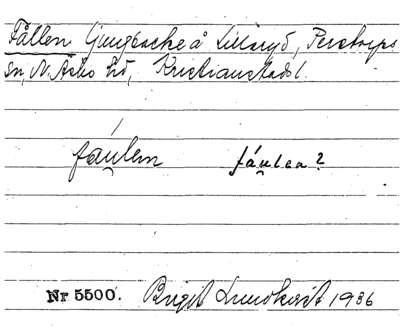 Fållen Ljungbacke å Lillaryd, Perstorps
sn, N. Åsbo hd, Kristianstads l.
fáu̯len fáu̯len?
Nr 5500. Birgit Lundkvist 1936